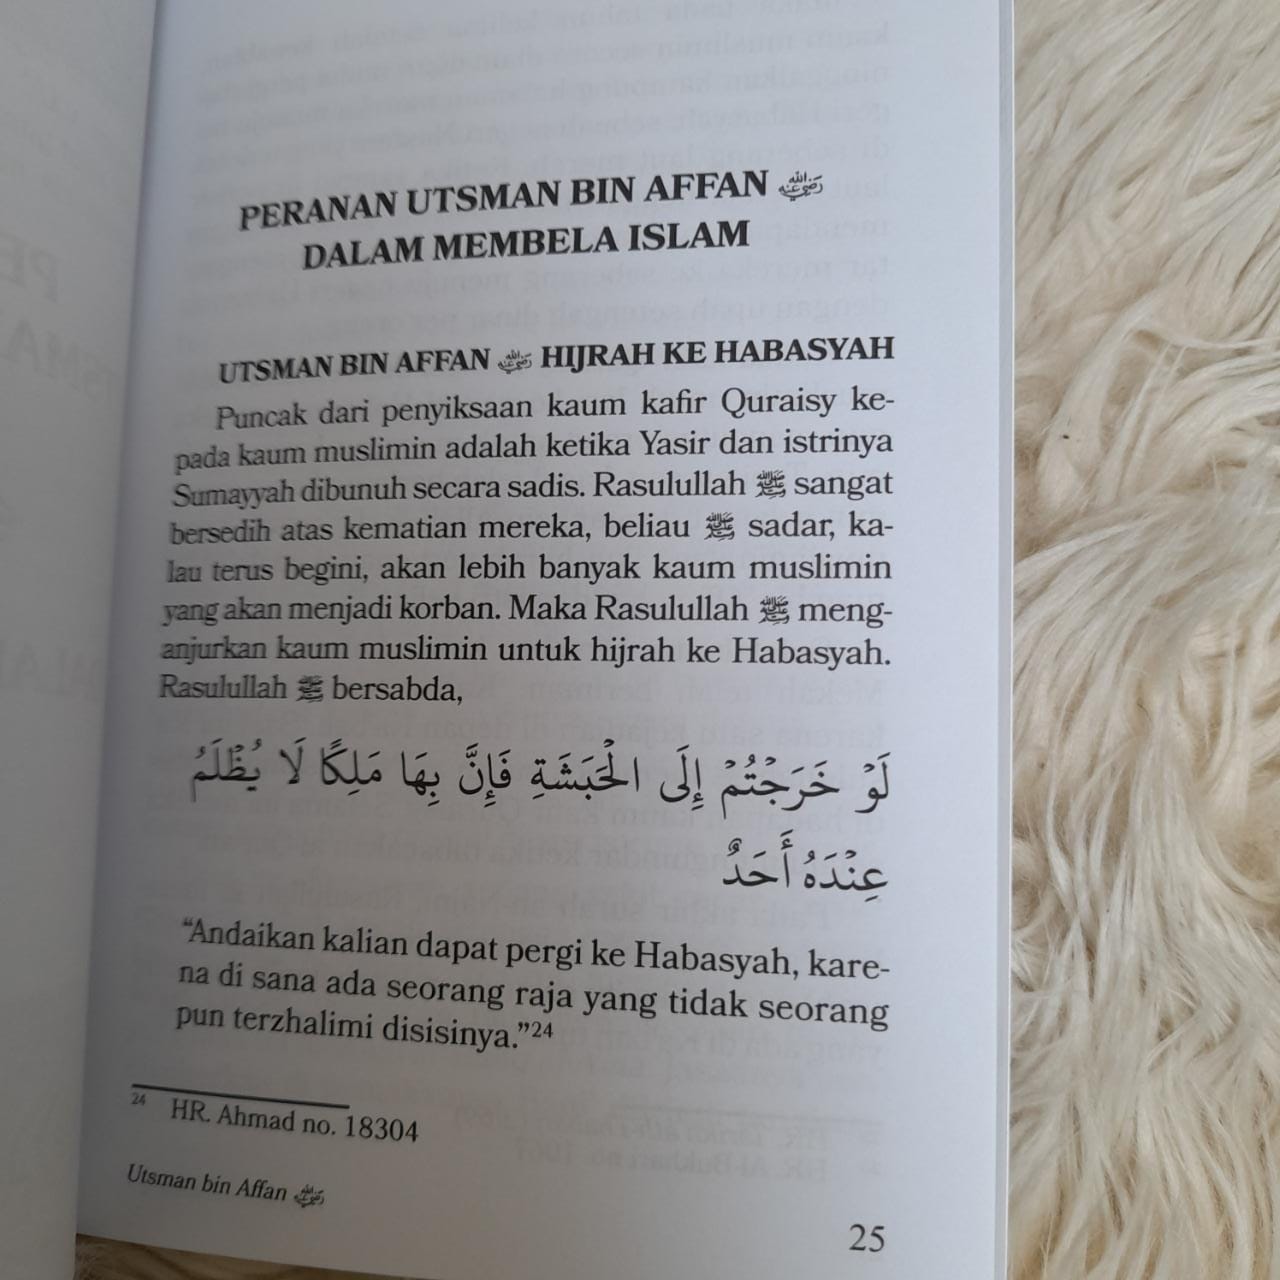 PERANAN UTSMAN BIN AFFAN رضي الله عنه
DALAM MEMBELA ISLAM
UTSMAN BIN AFFAN رضي الله عنه HIJRAH KE HABASYAH
Puncak dari penyiksaan kaum kafir Quraisy ke-
pada kaum muslimin adalah ketika Yasir dan istrinya
Sumayyah dibunuh secara sadis. Rasulullah ﷺ sangat
bersedih atas kematian mereka, beliau ﷺ sadar, ka-
lau terus begini, akan lebih banyak kaum muslimin
yang akan menjadi korban. Maka Rasulullah ﷺ meng-
anjurkan kaum muslimin untuk hijrah ke Habasyah.
Rasulullah ﷺ bersabda,
لَوْ خَرَجْتُمْ إِلَى الْحَبَشَةِ فَإِنَّ بِهَا مَلِكًا لَا يُظْلَمُ
عِنْدَهُ أَحَدٌ
“Andaikan kalian dapat pergi ke Habasyah, kare-
na di sana ada seorang raja yang tidak seorang
pun terzhalimi disisinya.”24
24 HR. Ahmad no. 18304
Utsman bin Affan رضي الله عنه
25